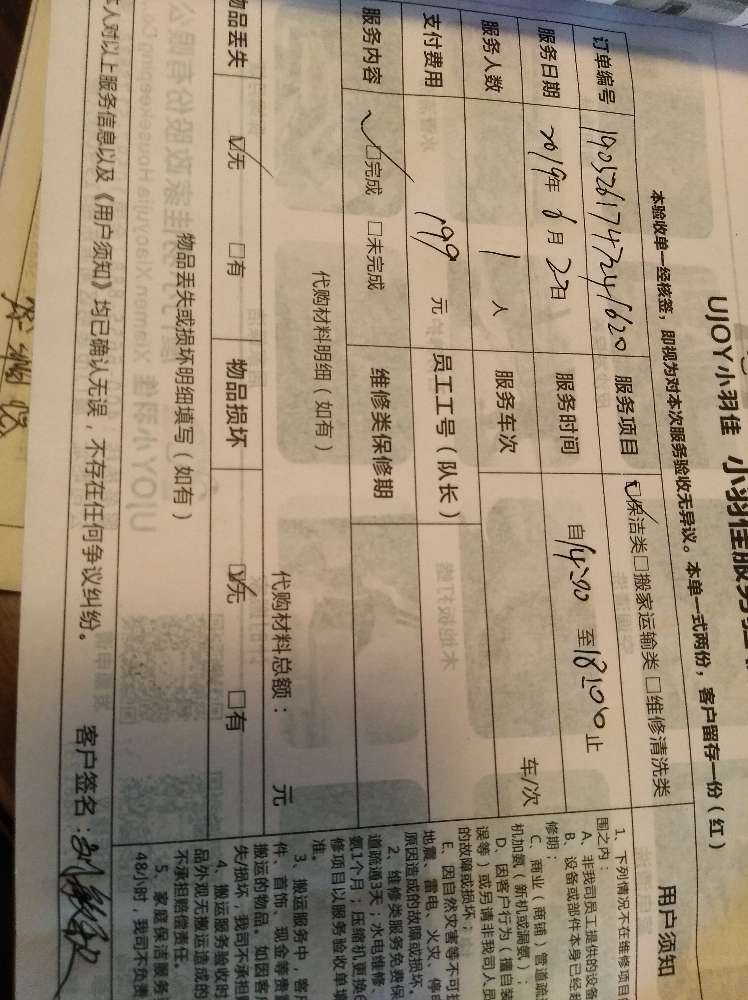 UJOY小羽佳 小羽佳服务验
本验收单一经核签，即视为对本次服务验收无异议。本单一式两份，客户留存一份（红）
订单编号 服务项目 ☑保洁类□搬家运输类□维修清洗类
服务日期 2019年6月2日 服务时间 自14:00至18:00止
服务人数 1人 服务车次 车/次
支付费用 199元 员工工号（队长）
服务内容 ☑完成 □未完成 维修类保修期
代购材料明细（如有） 代购材料总额： 元
物品丢失 ☑无 □有 物品损坏 ☑无 □有
物品丢失或损坏明细填写（如有）
本人对以上服务信息以及《用户须知》均已确认无误，不存在任何争议纠纷。
客户签名：
用户须知
1、下列情况不在维修项目
围之内：
A、非我司员工提供的设备
B、设备或部件本身已经
修期；
C、商业（商铺）管道疏
机加氨（新机或漏氨）；
D、因客户行为（擅自装
误等）或另请非我司人员
的故障或损坏；
E、因自然灾害等不可抗
地震、雷电、火灾、停电
原因造成的故障或损坏。
2、维修类服务免费保
道疏通3天；水电维修、
氨1个月；压缩机更换6
修项目以服务验收单填
准。
3、搬运服务中，客户
件、首饰、现金等贵重
搬运的物品。如因客户
失/损坏，我司不承担
4、搬运服务验收时
品外观无搬运造成的
不承担赔偿责任。
5、家庭保洁服务
48小时，我司不负责